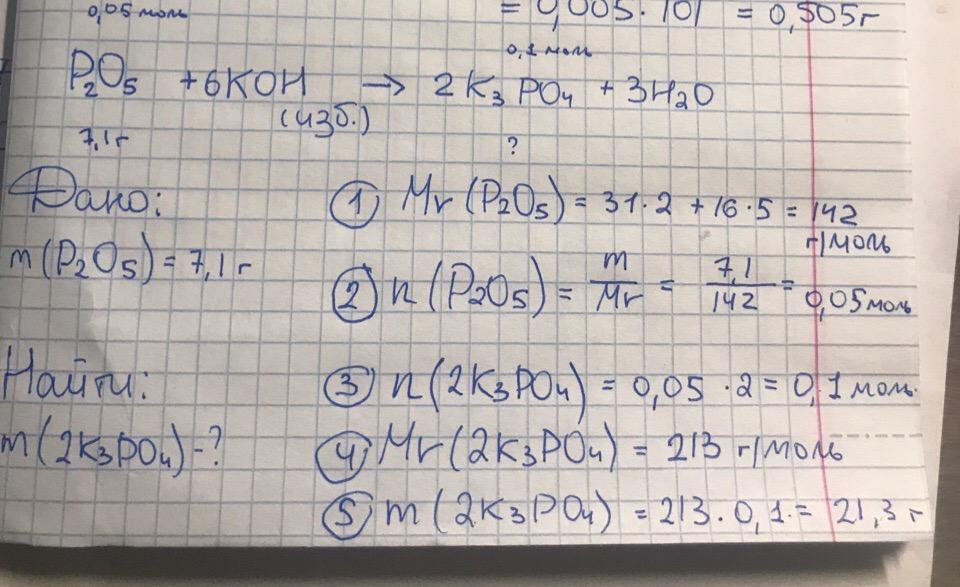 0,05 моль
= 0,005 · 101 = 0,505 г
0,1 моль
P₂O₅ + 6KOH → 2K₃PO₄ + 3H₂O
(изб.)
7,1 г
?
Дано:
m(P₂O₅) = 7,1 г
Найти:
m(2K₃PO₄) - ?
① Mr(P₂O₅) = 31·2 + 16·5 = 142 г/моль
② n(P₂O₅) = m/Mr = 7,1/142 = 0,05 моль
③ n(2K₃PO₄) = 0,05 · 2 = 0,1 моль.
④ Mr(2K₃PO₄) = 213 г/моль
⑤ m(2K₃PO₄) = 213 · 0,1 = 21,3 г